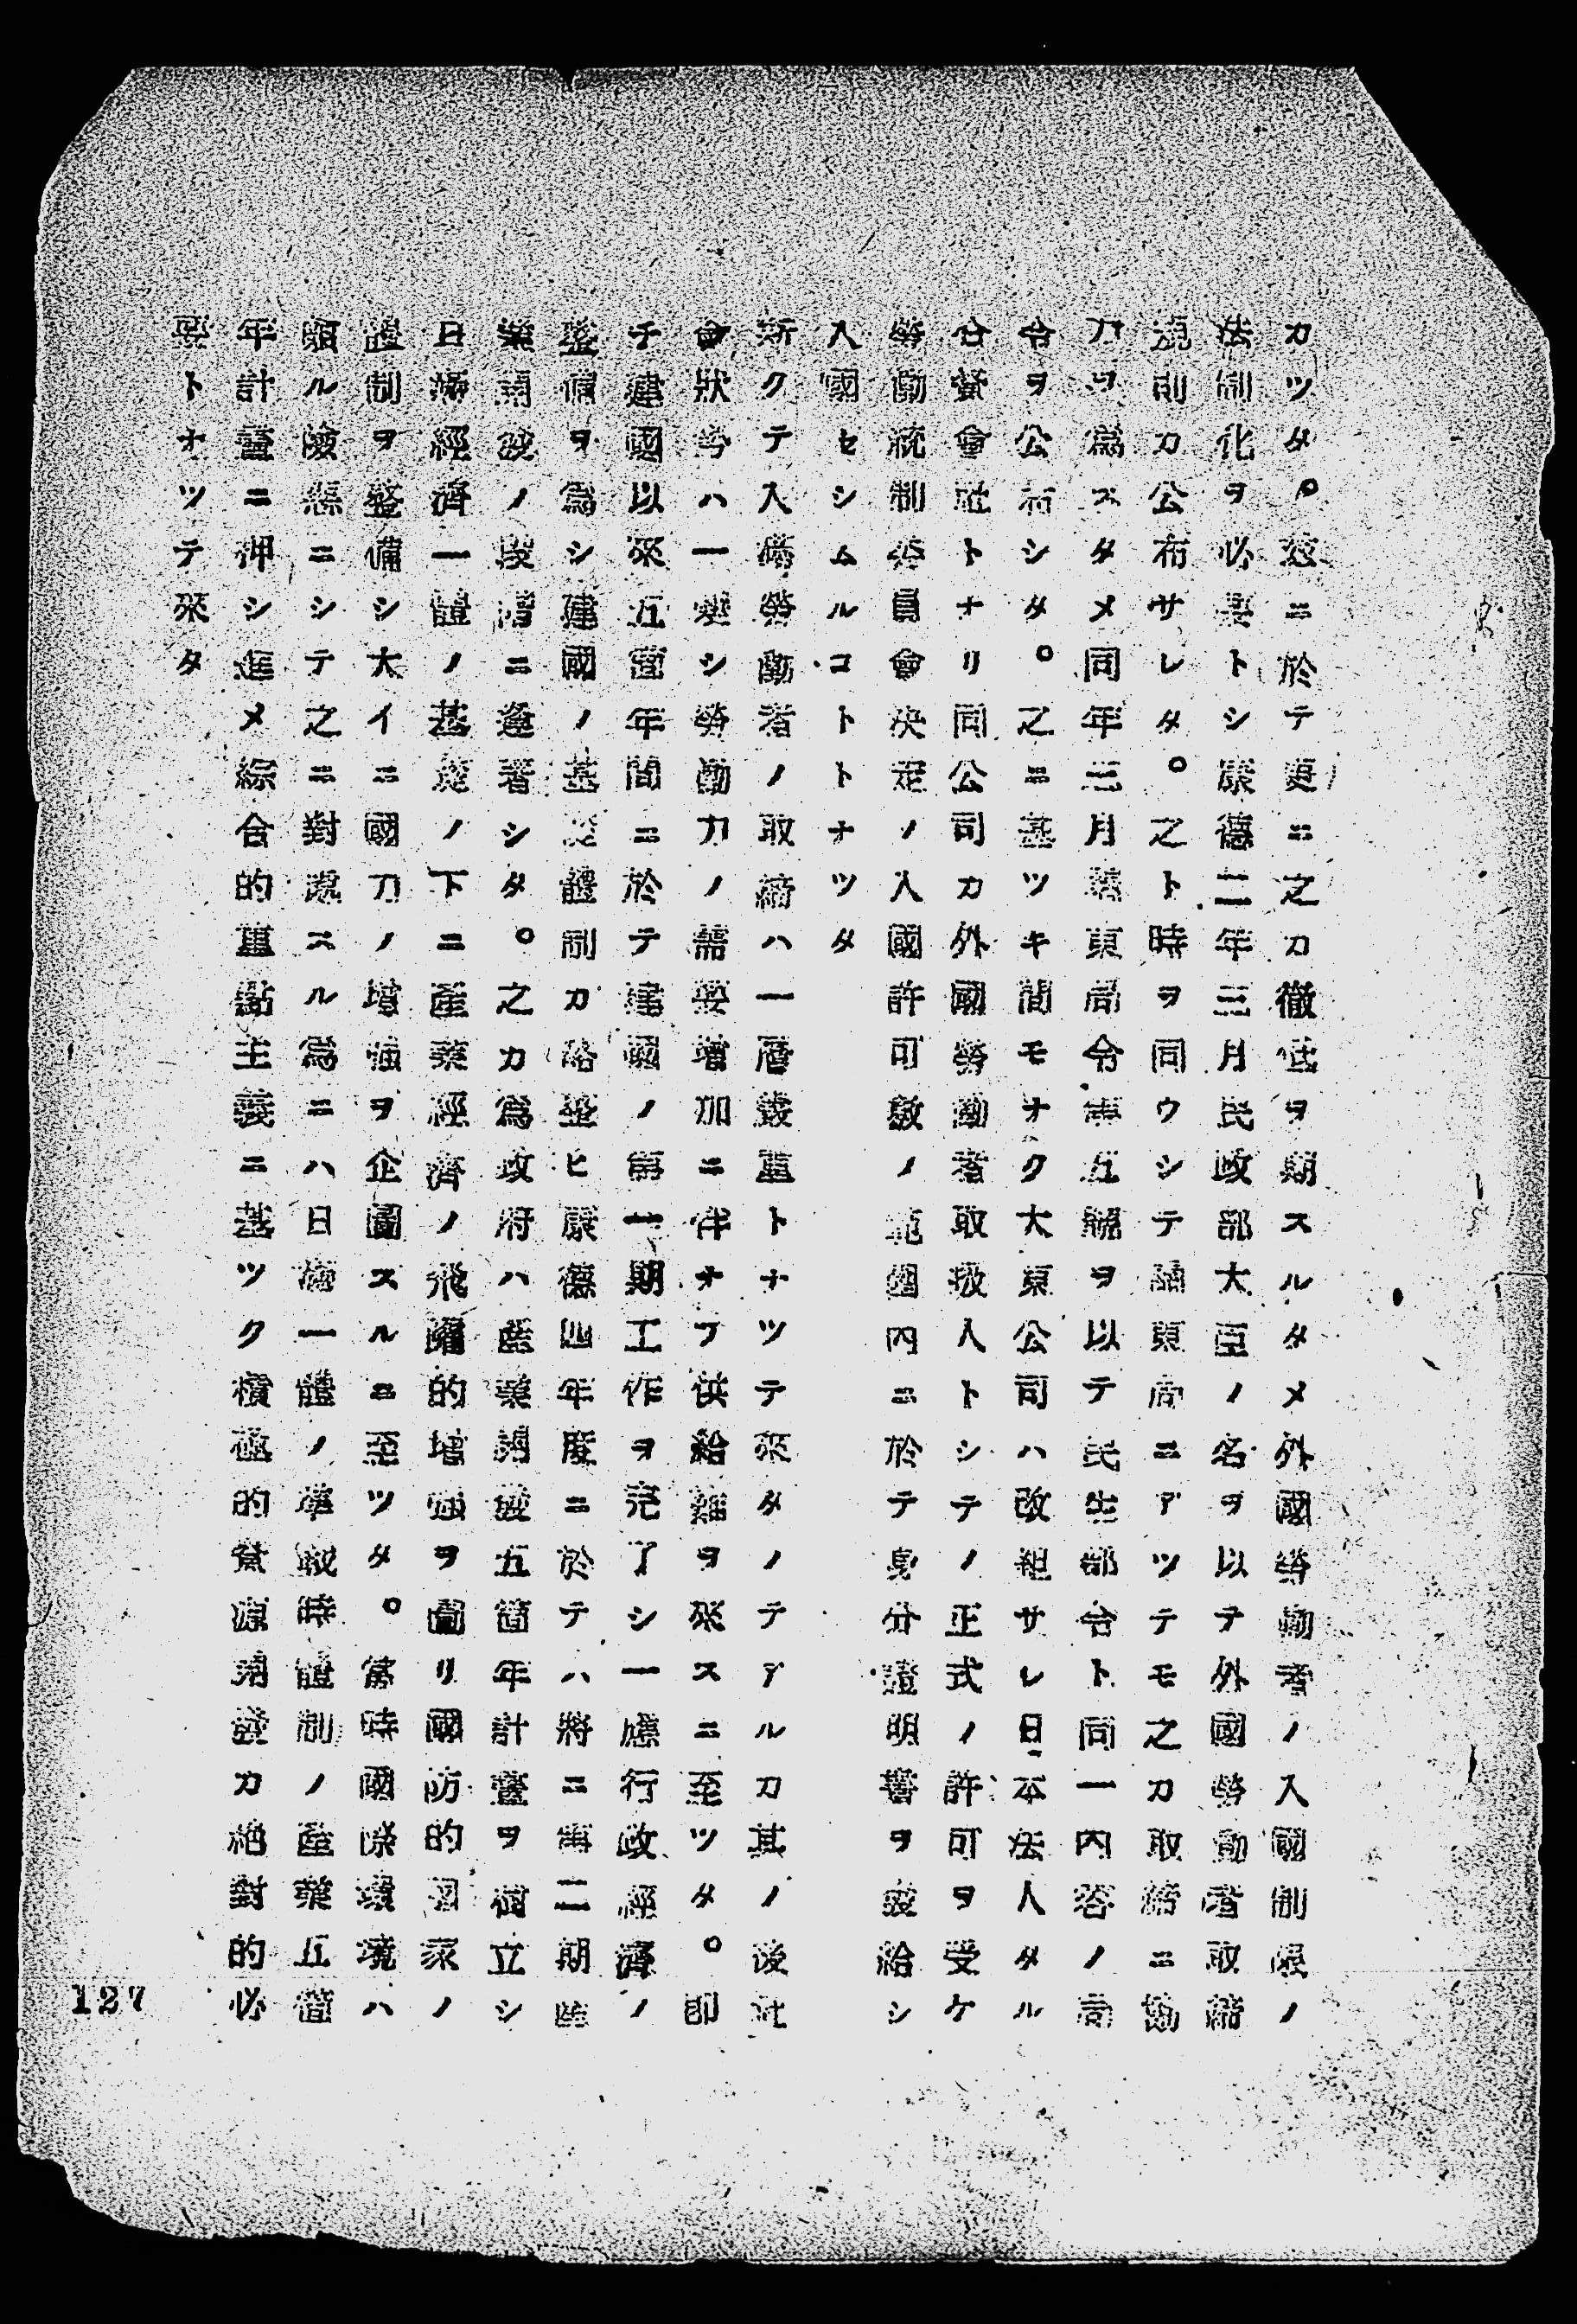 カツタ。茲ニ於テ更ニ之カ徹底ヲ期スルタメ外國勞働者ノ入國制限ノ
法制化ヲ必要トシ康德二年三月民政部大臣ノ名ヲ以テ外國勞働者取締
規則カ公布サレタ。之ト時ヲ同ウシテ關東局ニアツテモ之カ取締ニ協
力ヲ爲スタメ同年三月關東局令第五號ヲ以テ民生部令ト同一内容ノ局
令ヲ公布シタ。之ニ基ツキ間モナク大東公司ハ改組サレ日本法人タル
合資會社トナリ同公司カ外國勞働者取扱人トシテノ正式ノ許可ヲ受ケ
勞働統制委員會決定ノ入國許可數ノ範圍内ニ於テ身分證明書ヲ發給シ
入國セシムルコトトナツタ
斯クテ入滿勞働者ノ取締ハ一層嚴重トナツテ來タノテアルカ其ノ後社
會狀勢ハ一變シ勞働力ノ需要增加ニ伴ナフ供給難ヲ來スニ至ツタ。即
チ建國以來五箇年間ニ於テ建國ノ第一期工作ヲ完了シ一應行政經濟ノ
整備ヲ爲シ建國ノ基礎體制カ略整ヒ康德四年度ニ於テハ將ニ第二期產
業開發ノ段階ニ逢着シタ。之カ爲政府ハ產業開發五箇年計畫ヲ樹立シ
日滿經濟一體ノ基礎ノ下ニ產業經濟ノ飛躍的增强ヲ圖リ國防的國家ノ
體制ヲ整備シ大イニ國力ノ增强ヲ企圖スルニ至ツタ。當時國際環境ハ
頗ル險惡ニシテ之ニ對處スル爲ニハ日滿一體ノ準戰時體制ノ產業五箇
年計畫ニ押シ進メ綜合的重點主義ニ基ツク積極的資源開發カ絕對的必
要トナツテ來タ
127